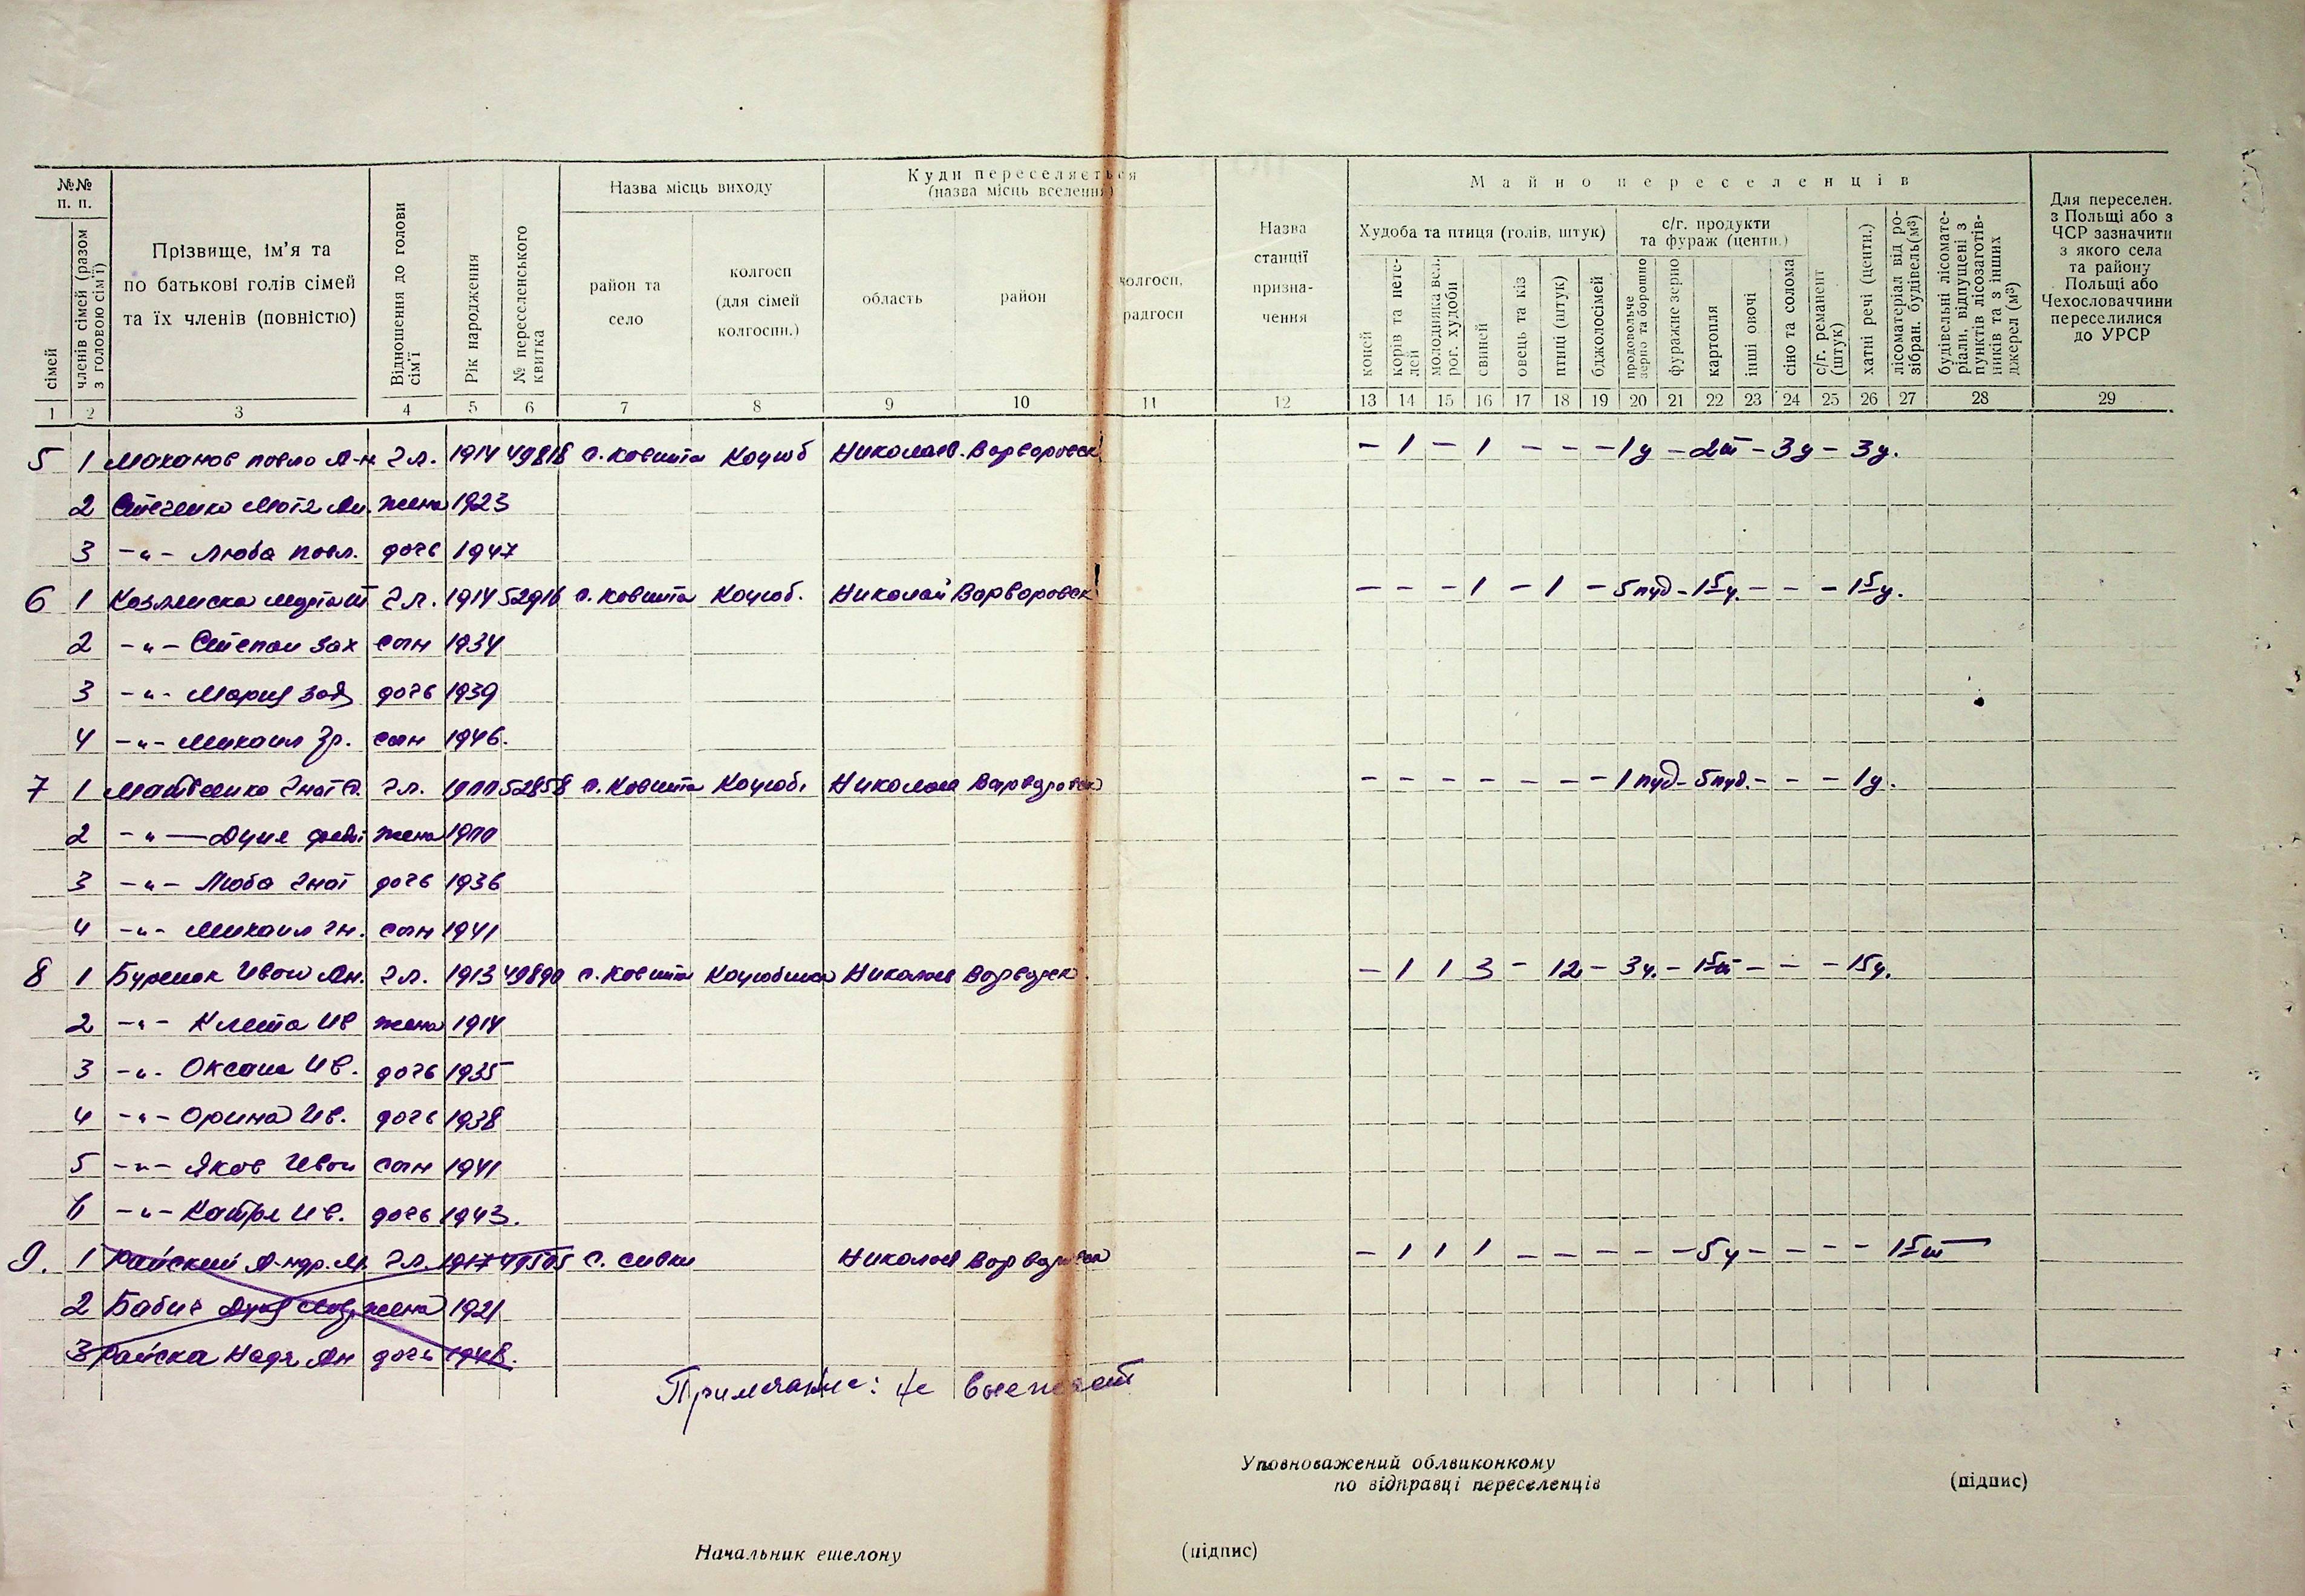 №№ п. п.
сімей
членів сімей (разом з головою сім'ї)
Прізвище, ім'я та
по батькові голів сімей
та їх членів (повністю)
Відношення до голови сім'ї
Рік народження
№ переселенського квитка
Назва місць виходу
район та село
колгосп (для сімей колгоспн.)
Куди переселяється
(назва місць вселення)
область
район
колгосп, радгосп
Назва станції призна-чення
Майно переселенців
Худоба та птиця (голів, штук)
коней
корів та нете-лей
молодняка вел. рог. худоби
свиней
овець та кіз
птиці (штук)
бджолосімей
с/г. продукти
та фураж (центн.)
продовольче зерно та борошно
фуражне зерно
картопля
інші овочі
сіно та солома
с/г. реманент (штук)
хатні речі (центн.)
лісоматеріал від ро-зібран. будівель (м³)
будівельні лісомате-ріали, відпущені з пунктів лісозаготів-ників та з інших джерел (м³)
Для переселен.
з Польщі або з
ЧСР зазначити
з якого села
та району
Польщі або
Чехословаччини
переселилися
до УРСР
1 2 3 4 5 6 7 8 9 10 11 12 13 14 15 16 17 18 19 20 21 22 23 24 25 26 27 28 29
5 1 гл. 1914 49818 Николаев. Варваровск - 1 - 1 - - - 1ц - 2т - 3ц - 3ц.
2 жена 1923
3 -"- Люба Павл. дочь 1947
6 1 гл. 1914 52916 Николай Варваровск - - - 1 - 1 - 5 пуд - 15ц. - - - 15ц.
2 -"- Степан Зах сын 1934
3 -"- Мария дочь 1939
4 -"- Михаил Гр. сын 1946.
7 1 Матвеико Гнат гл. 1900 52858 Николаев Варваровск - - - - - - - 1 пуд - 5 пуд. - - - 1ц.
2 -"- жена 1900
3 -"- Люба Гнат дочь 1936
4 -"- Михаил Гн. сын 1941
8 1 Иван Ан. гл. 1913 49890 Николаев - 1 1 3 - 12 - 3ц. - 15т - - - 15ц.
2 -"- Ив жена 1914
3 -"- Оксана Ив. дочь 1935
4 -"- Орина Ив. дочь 1938
5 -"- Яков Иван сын 1941
6 -"- Катря Ив. дочь 1943.
9. 1 Райский Андр. гл. 1917 49505 с. Сивки Николаев - 1 1 1 - - - - - 5ц - - - - 15т
2 Бабич жена 1921
3 Райска Надя Ан дочь 1948.
Примечание: не выезжает
Уповноважений облвиконкому
по відправці переселенців
(підпис)
Начальник ешелону
(підпис)